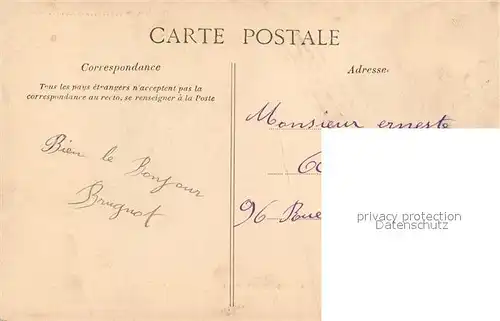 CARTE POSTALE
Correspondance
Tous les pays étrangers n'acceptent pas la
correspondance au recto, se renseigner à la Poste
Adresse
Bien le Bonjour
Brugnot
Monsieur ernest
96 Rue
privacy protection
Datenschutz